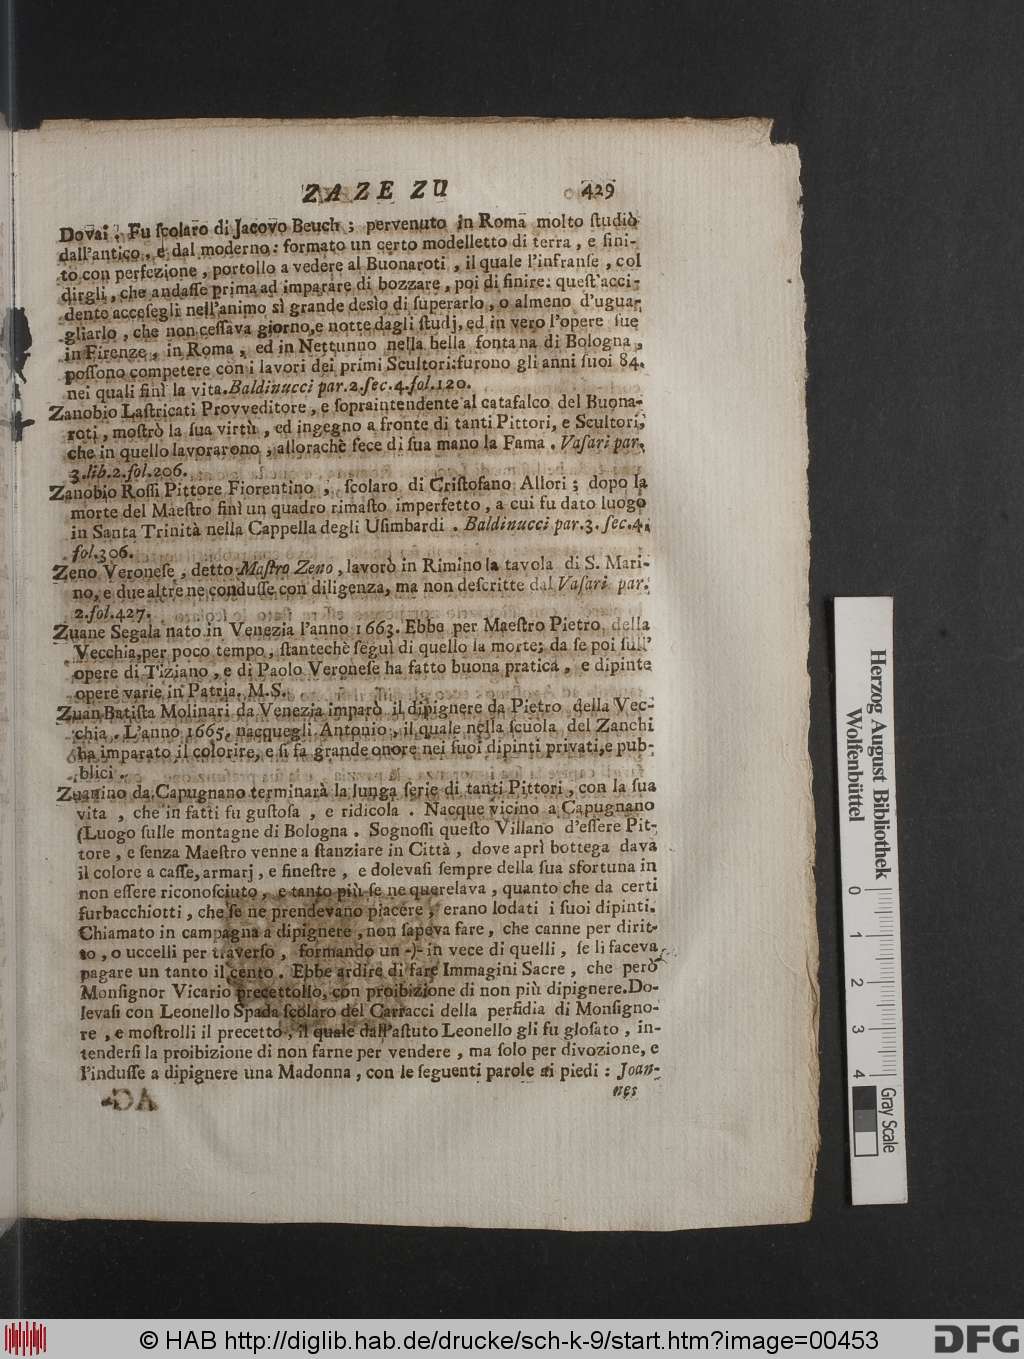 ZA ZE ZU 429
Dovai. Fu ſcolaro di Jacovo Beuch; pervenuto in Roma molto ſtudiò
dall'antico, e dal moderno: formato un certo modelletto di terra, e fini-
to con perfezione, portollo a vedere al Buonaroti, il quale l'infranſe, col
dirgli, che andaſſe prima ad imparare di bozzare, poi di finire: queſt'acci-
dente acceſegli nell'animo sì grande desìo di ſuperarlo, o almeno d'ugua-
gliarlo, che non ceſſava giorno, e notte dagli ſtudj, ed in vero l'opere ſue
in Firenze, in Roma, ed in Nettunno nella bella fontana di Bologna,
poſſono competere con i lavori dei primi Scultori: furono gli anni ſuoi 84.
nei quali finì la vita. Baldinucci par. 2. ſec. 4. fol. 120.
Zanobio Laſtricati Provveditore, e ſopraintendente al catafalco del Buona-
roti, moſtrò la ſua virtù, ed ingegno a fronte di tanti Pittori, e Scultori,
che in quello lavorarono, allorachè fece di ſua mano la Fama. Vaſari par.
3. lib. 2. fol. 206.
Zanobio Roſſi Pittore Fiorentino, ſcolaro di Criſtofano Allori; dopo la
morte del Maeſtro finì un quadro rimaſto imperfetto, a cui fu dato luogo
in Santa Trinità nella Cappella degli Uſimbardi. Baldinucci par. 3. ſec. 4.
fol. 306.
Zeno Veroneſe, detto Maſtro Zeno, lavorò in Rimino la tavola di S. Mari-
no, e due altre ne conduſſe con diligenza, ma non deſcritte dal Vaſari par.
2. fol. 427.
Zuane Segala nato in Venezia l'anno 1663. Ebbe per Maeſtro Pietro della
Vecchia, per poco tempo, ſtantechè ſeguì di quello la morte; da ſe poi ſull'
opere di Tiziano, e di Paolo Veroneſe ha fatto buona pratica, e dipinte
opere varie in Patria. M. S.
Zuan Batiſta Molinari da Venezia imparò il dipignere da Pietro della Vec-
chia. L'anno 1665. nacquegli Antonio, il quale nella ſcuola del Zanchi
ha imparato il colorire, e ſi fa grande onore nei ſuoi dipinti privati, e pub-
blici.
Zuanino da Capugnano terminarà la lunga ſerie di tanti Pittori, con la ſua
vita, che in fatti fu guſtoſa, e ridicola. Nacque vicino a Capugnano
(Luogo ſulle montagne di Bologna. Sognoſſi queſto Villano d'eſſere Pit-
tore, e ſenza Maeſtro venne a ſtanziare in Città, dove aprì bottega dava
il colore a caſſe, armarj, e fineſtre, e dolevaſi ſempre della ſua sfortuna in
non eſſere riconoſciuto, e tanto più ſe ne querelava, quanto che da certi
furbacchiotti, che ſe ne prendevano piacere, erano lodati i ſuoi dipinti.
Chiamato in campagna a dipignere, non ſapeva fare, che canne per dirit-
to, o uccelli per traverſo, formando un -)- in vece di quelli, ſe li faceva
pagare un tanto il cento. Ebbe ardire di fare Immagini Sacre, che però
Monſignor Vicario precettollo, con proibizione di non più dipignere. Do-
levaſi con Leonello Spada ſcolaro del Carracci della perfidia di Monſigno-
re, e moſtrolli il precetto, il quale dall'aſtuto Leonello gli fu gloſato, in-
tenderſi la proibizione di non farne per vendere, ma ſolo per divozione, e
l'induſſe a dipignere una Madonna, con le ſeguenti parole ai piedi: Joan-
nes
Herzog August Bibliothek
Wolfenbüttel
0 1 2 3 4
Gray Scale
© HAB http://diglib.hab.de/drucke/sch-k-9/start.htm?image=00453
DFG